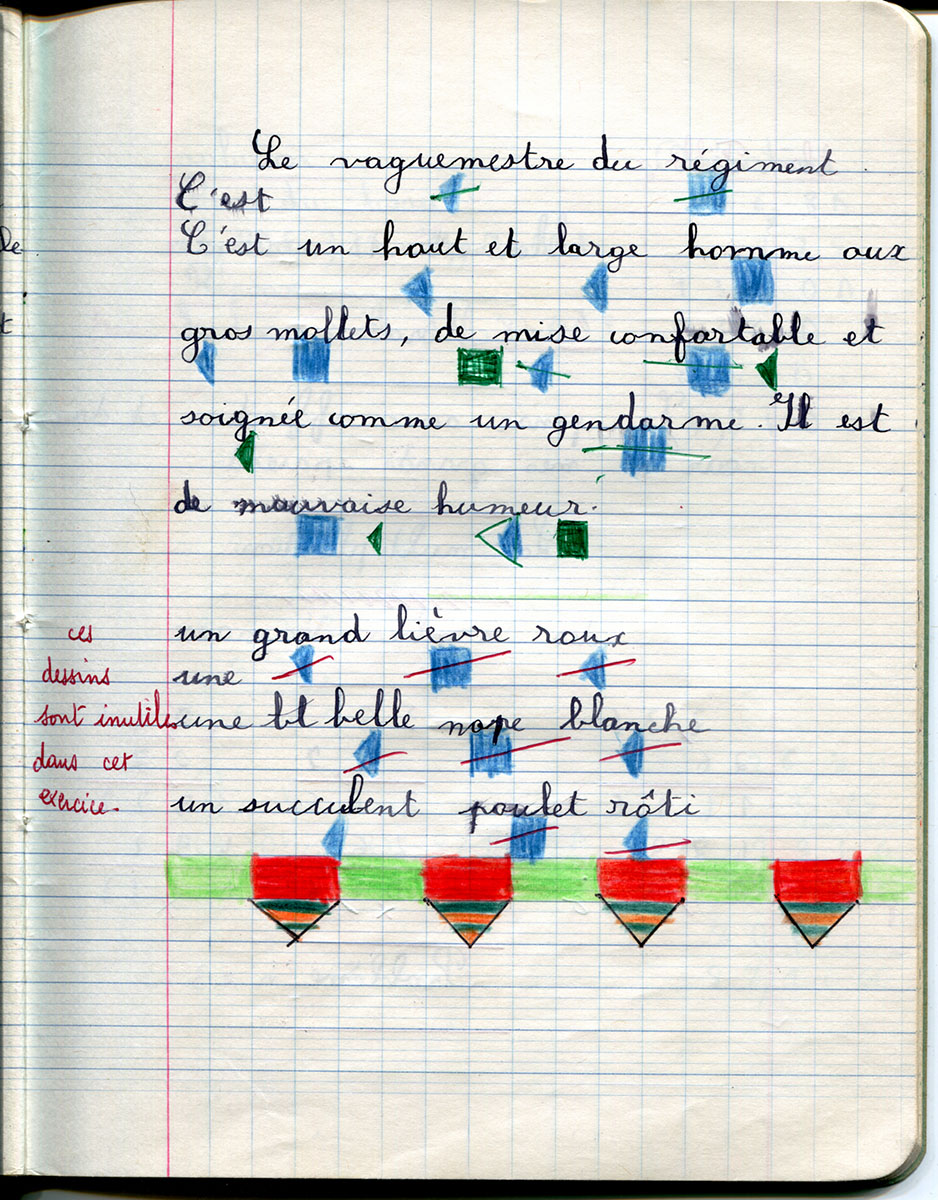 Le vaguemestre du régiment.
C'est
C'est un haut et large homme aux
gros mollets, de mise confortable et
soignée comme un gendarme. Il est
de mauvaise humeur.
un grand lièvre roux
une
une bt belle nape blanche
un succulent poulet rôti
ces
dessins
sont inutiles
dans cet
exercice.
le
t